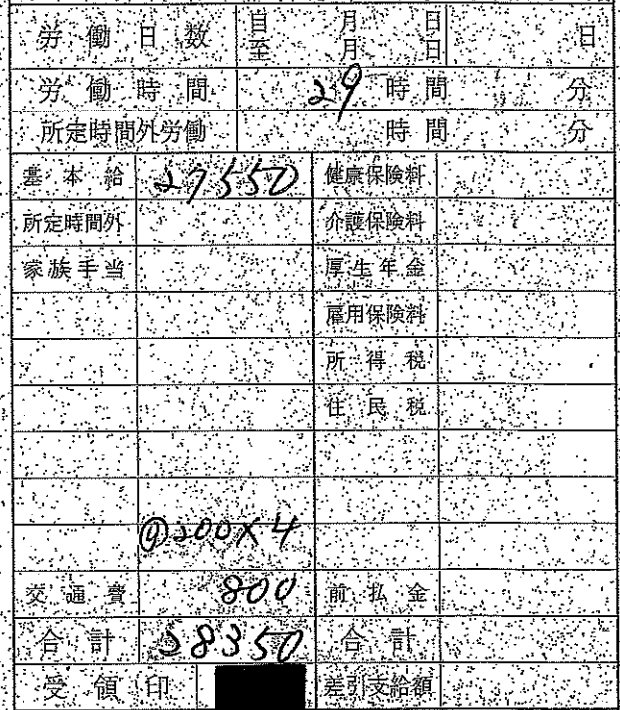 労働日数 自 月 日 至 月 日 日
労働時間 29 時間 分
所定時間外労働 時間 分
基本給 27550 健康保険料
所定時間外 介護保険料
家族手当 厚生年金
雇用保険料
所得税
住民税
@200×4
交通費 800 前払金
合計 28350 合計
受領印 差引支給額